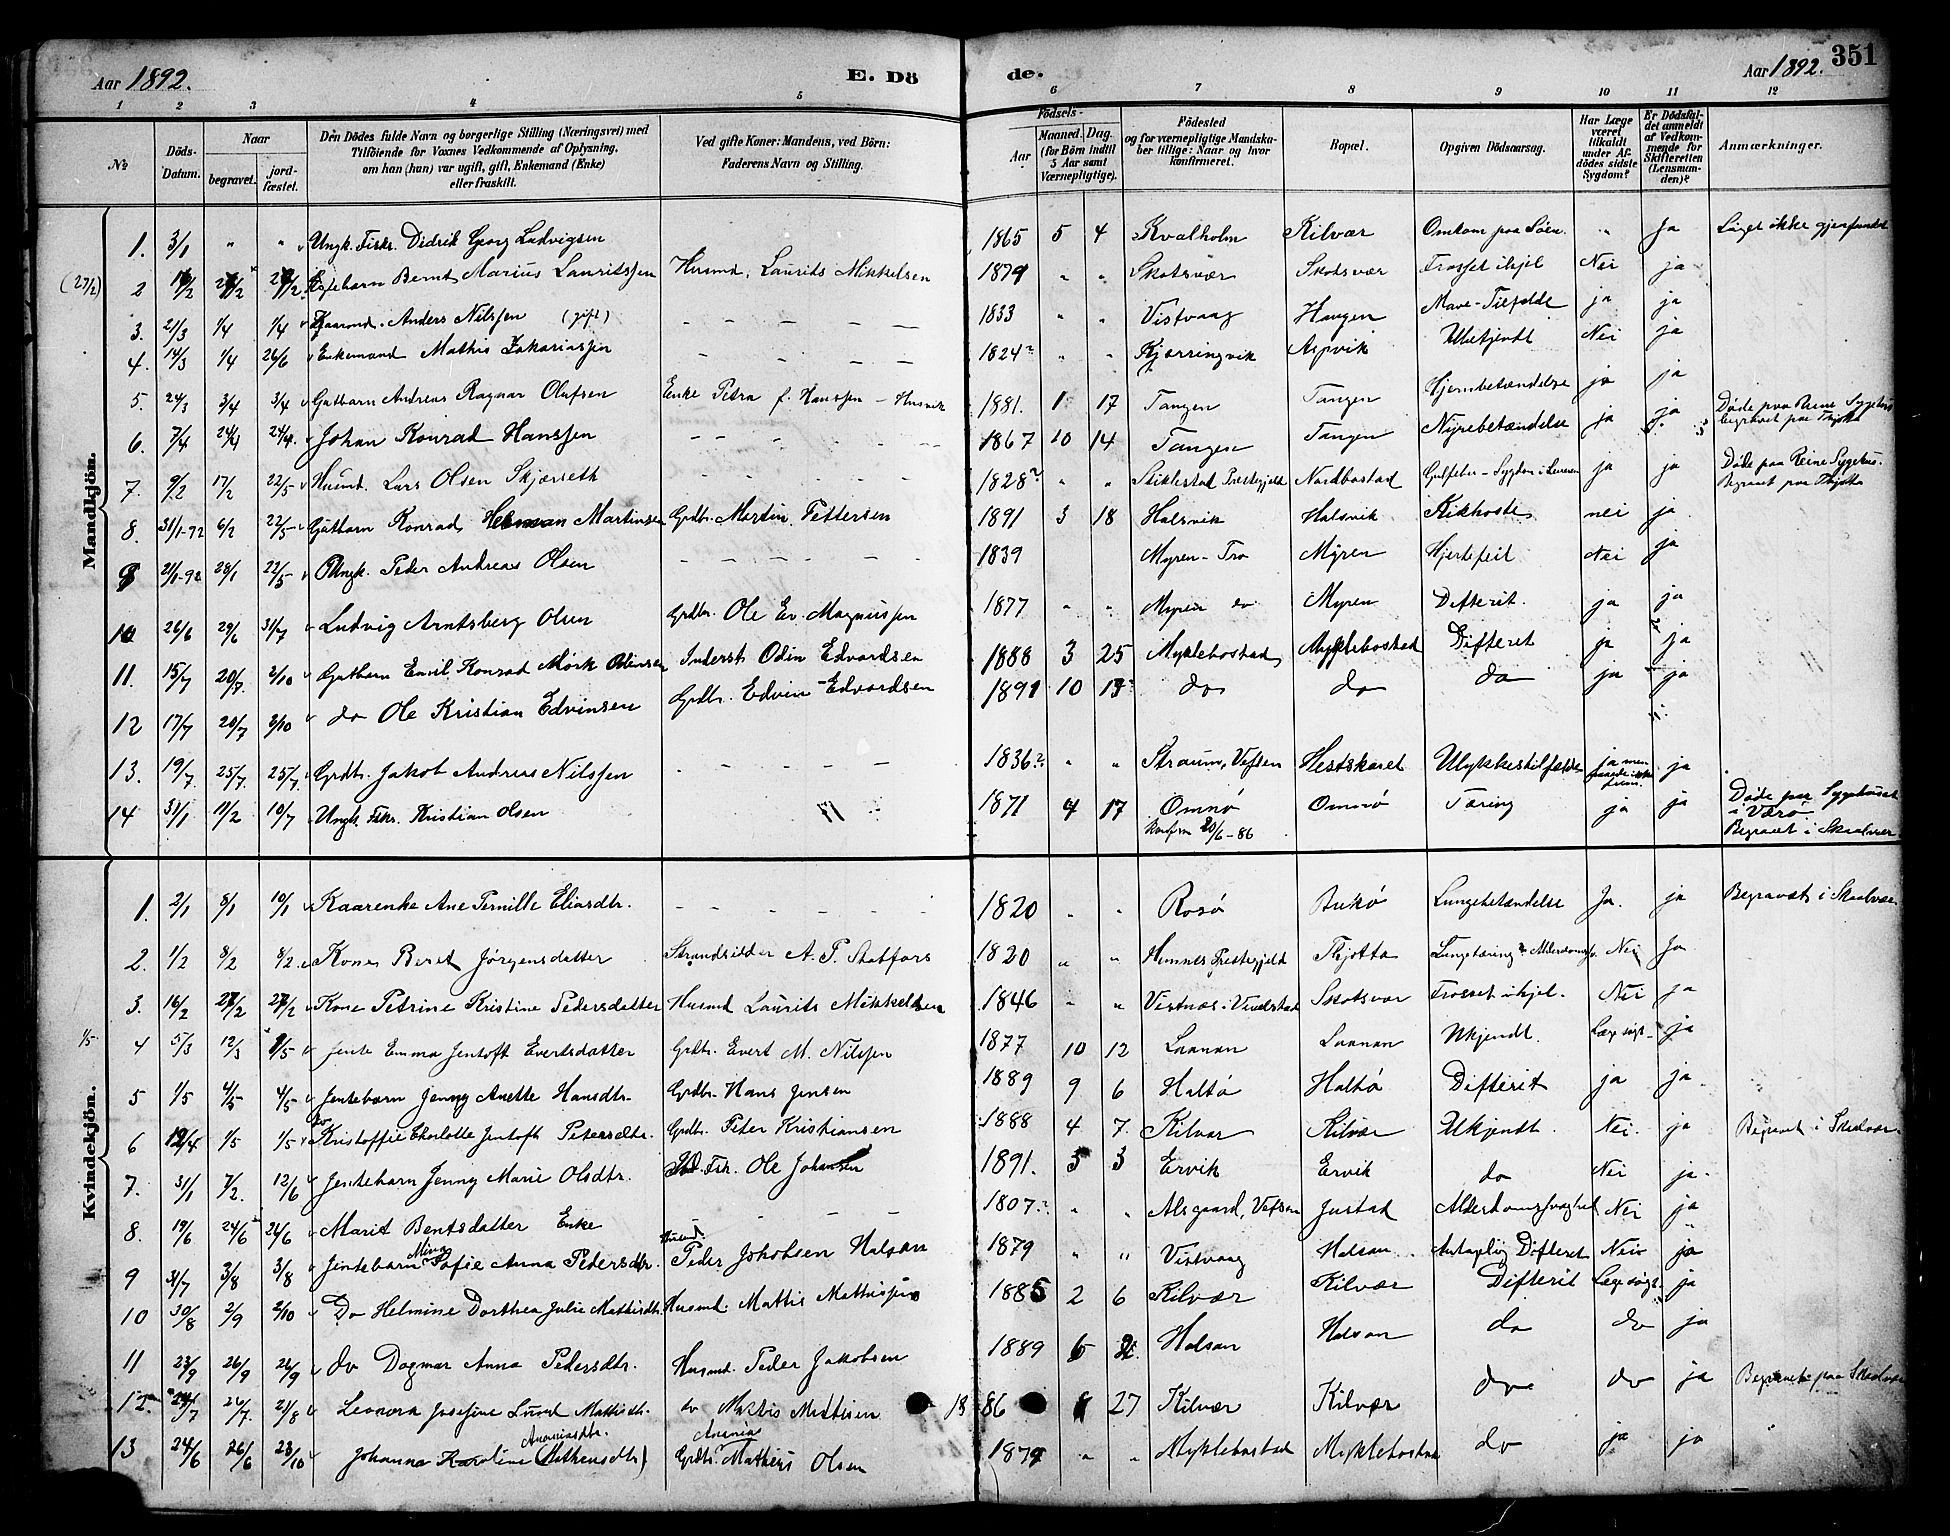 Aar 1892. E. Dö
de. Aar 1892. 351
1 2 3 4 5 6 7 8 9 10 11 12
№
Döds-Datum.
Naar
begravet.
jord-fæstet.
Den Dödes fulde Navn og borgerlige Stilling (Næringsvei) med
Tilföiende for Voxnes Vedkommende af Oplysning,
om han (hun) var ugift, gift, Enkemand (Enke)
eller fraskilt.
Ved gifte Koner: Mandens, ved Börn:
Faderens Navn og Stilling.
Födsels-
Aar
Maaned. Dag.
(for Börn indtil
5 Aar samt
Værnepligtige).
Födested
og for værnepligtige Mandska-
ber tillige: Naar og hvor
konfirmeret.
Bopæl.
Opgiven Dödsaarsag.
Har Læge
været
tilkaldt
under Af-
dödes sidste
Sygdom?
Er Dödsfal-
det anmeldt
af Vedkom-
mende for
Skifteretten
(Lensman-
den)?
Anmærkninger.
Mandkjön.
1. 3/1 " " Ungk. Fisker Didrik Georg Ludvigsen 1865 5 4 Kvalholm Kilvær Omkom paa Söen. " Ja Liget ikke gjenfundet
(27/2) 2 Bernt Marius Lauritssen Husmd. Laurits Mikkelsen 1879 " " Skotsvær Skotsvær Frosset ihjel Nei ja
3. 21/3 1/4 1/4 Gaarmd. Anders Nilssen (gift) 1833 " " Vistvaag Haugen Mave-Tilfælde ja ja
4. 14/3 1/4 26/6 Enkemand Mathis Zakariassen 1824? " " Kjærringvik Aspvik Ubekjendt Nei ja
5. 24/3 3/4 3/4 Gutbarn Andreas Ragnar Olufsen Enke Petra f. Hanssen - Husvik 1881. 1 17 Tangen Tangen Hjernebetændelse ja ja
6. 7/4 24/4 24/4. Johan Konrad Hanssen 1867 10 14 Tangen Tangen Nyrebetændelse ja ja. Döde paa Reine Sygehus begravet paa Thjotta
7. 9/2 17/2 22/5 Husmd. Lars Olsen Skjærseth 1828? " " Stiklestad Prestegjeld Nordbostad Gulfeber - Sygdom i Leveren ja ja Döde paa Reine Sygehus. Begravet paa Thjotta
8. 31/1-92 6/2 22/5 Gutbarn Konrad Herman Martinsen Grdbr. Martin Pettersen 1891 3 18 Halsvik Halsvik Kikhoste nei ja
9 21/1-92 28/1 22/5 Ungk. Peder Andreas Olsen 1839 Myren-Tro Myren Hjertefeil Nei ja
10 26/6 29/6 31/7 Ludvig Arntsberg Olsen Grdbr. Ole Ev. Magnussen 1877 " " Myren do Myren Difterit. ja ja
11. 15/7 20/7. 2/10 Gutbarn Emil Konrad Mørk Odinsen Inderst Odin Edvardsen 1888 3 25 Myklebostad Myklebostad Difterit ja ja
12 17/7 20/7 2/10 do Ole Kristian Edvinsen Grdbr. Edvin Edvardsen 1891 10 13 do do do ja ja
13. 19/7 25/7. 25/7 Grdbr. Jakob Andreas Nilssen 1836? " " Straum, Vefsen Hestskaret Ulykkestilfælde ja men ja
14 31/1 11/2 10/7 Ungk. Fskr. Kristian Olsen 1871 4 17 Omnö Omnö Tæring ja ja Döde paa Sygehuset
Konfirm 20/6-86 i Værö
Begravet i Skaalvær
Kvindekjön.
1. 2/1 8/1 10/1 Kaarenke Ane Pernille Eliasdtr. 1820 " " Rosö Buko Lungebetændelse Ja. ja Begravet i Skaalvær
2. 1/2 8/2 8/2 Kone Beret Jørgensdatter Strandsidder A. P. Statfors 1820 " " Hemnes Prestegjeld Thjotta Lungetæring & Alderdomsf. Nei Ja
3. 16/2 27/2 27/2 Kone Petrine Kristine Pedersdatter Husmd Laurits Mikkelsen 1846 " " Vistnæs i Skotsvær Frosset ihjel. Nei ja
1/5 4 5/3 12/3 1/5 Jente Emma Jentoft Evertsdatter Grdbr. Evert M. Nilssen 1877 10 12 Laanan Laanan Ukjendt. Læge søgt. ja
5 1/5 4/5 4/5 Jentebarn Jenny Anette Hansdtr. Grdbr. Hans Jensen 1889 9 6 Haltö Haltö Difterit ja ja.
6 12/4 1/5 1/5 Do Kristoffie Charlotte Jentoft Petersdtr. Grdbr. Peter Kristiansen 1888 4 7. Kilvær Kilvær Ukjendt. Nei. ja Begravet i Skaalvær
7. 31/1 7/2. 12/6 Jentebarn Jenny Marie Olsdtr. Fskr. Ole Johansen 1891. 5 3 Ervik Ervik do Nei ja.
8. 19/6 24/6 26/6 Marit Bentsdatter Enke 1807.? " " Alsgaard, Vefsen Justad Alderdomssvaghed Nei ja
9 31/7 3/8 3/8 Jentebarn Mina Sofie Anna Pedersdtr. Husmd. Peder Jakobsen Halsan 1879 " " Vistvaag Halsan Antagelig Difterit Nei ja
10 30/8 2/9 2/10 Do Helmine Dorthea Julie Mathisdtr. Husmd. Mattis Mattissen 1885 2 6 Kilvær Kilvær Difterit Læge søgt. ja
11 23/9 26/9 26/9 do Dagmar Anna Pedersdtr. Husmd. Peder Jakobsen 1889 6 Halsan Halsan do do ja
12. 24/7 21/8 Leonora Josefine Lund Mattisdtr. do Mattis Mattisen 1886 27 Kilvær Kilvær do do ja Begravet paa Skaalvær
13 24/6 26/6 23/10 Johanna Karoline Ananiasdtr. (Mathensdtr) Grdbr. Ananias Mathias Olsen 1879 " " Myklebostad Myklebostad do ja ja